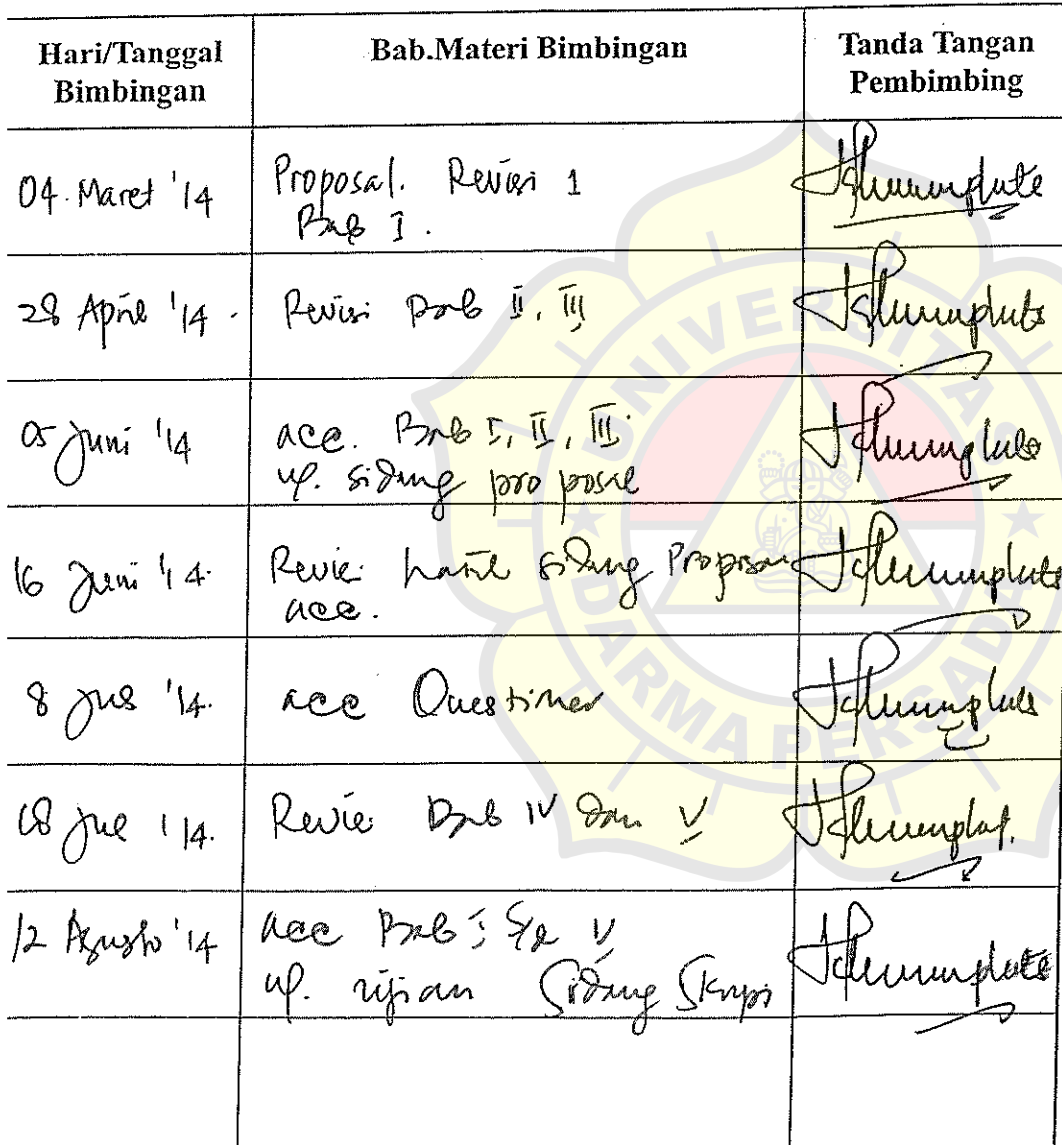 Hari/Tanggal Bimbingan
Bab.Materi Bimbingan
Tanda Tangan Pembimbing
04 Maret '14
Proposal. Revisi 1
Bab I.
28 April '14.
Revisi Bab II, III
05 Juni '14
acc. Bab I, II, III
up. sidang proposal
16 Juni '14.
Revisi hasil sidang Proposal
acc.
8 Juli '14.
acc Questioner
18 Jul '14.
Revisi Bab IV dan V
12 Agusto '14
acc Bab I s/d V
up. ujian Sidang Skripsi
UNIVERSITAS
DARMA PERSADA